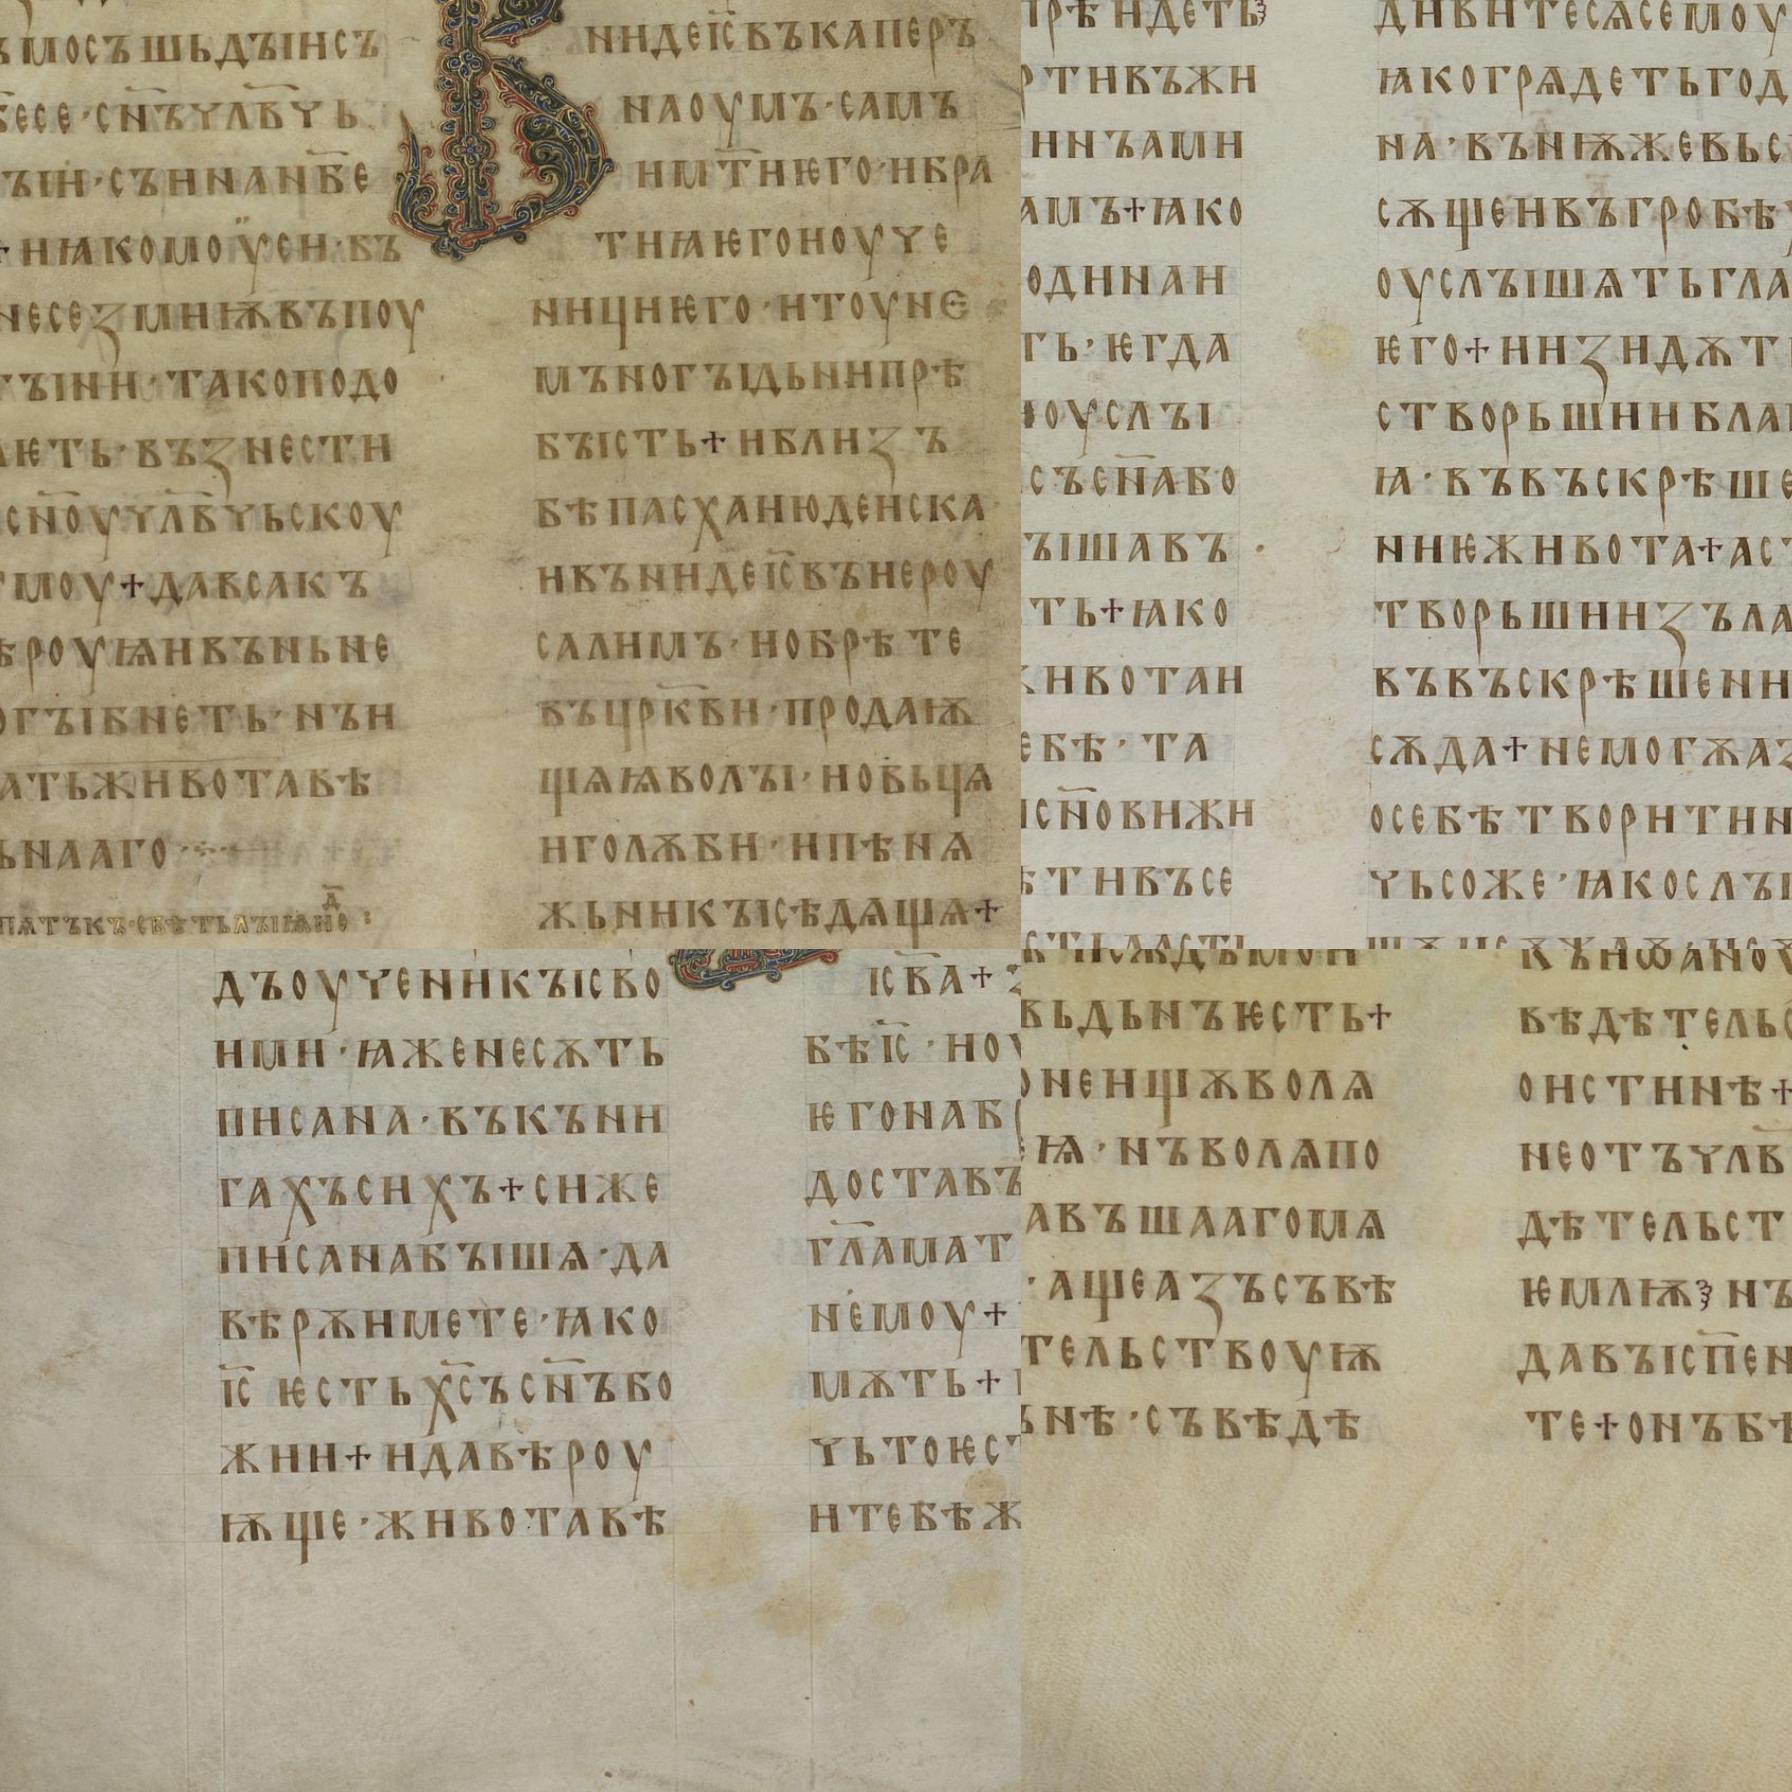 ѢМОСЪШЬДЪІИСЪ
БЕСЕ·СН҃ЪЧЛВ҃ЧЬ
ЪІИ·СЪИИНАНБ҃Е
НꙖКОМОѴСЕИ·ВЪ
НЕСЕЗМИѬВЪПОУ
ТЪІНИ·ТАКОПОДО
АѤТЬ·ВЪЗНЕСТИ
СН҃ОУЧЛВ҃ЧЬСКОУ
МОУ+ДАВСАКЪ
ѢРОУѨИВЪНЬНЕ
ОГЪІБНЕТЬ·НЪИ
АТЬЖИВОТАВѢ
ЬНААГО·
ПѦТЪКЪ·СВѢТЬЛЪІѨНЕД҃:
НИДЕІС҃ВЪКАПЕРЪ
НАОУМЪ·САМЪ
ИМТ҃ИѤГО·ИБРА
ТИꙖѤГОИОУЧЕ
НИЦИѤГО·ИТОУНЕ
МЪНОГЪІДЬНИПРѢ
БЪІСТЬ+ИБЛИЗЪ
БѢПАСХАИЮДЕИСКА
ИВЪНИДЕІС҃ВЪИЕРОУ
САЛИМЪ·ИОБРѢТЕ
ВЪЦРК҃ВИ·ПРОДАѬ
ЩѦꙖВОЛЪІ·ИОВЬЦѦ
ИГОЛѪБИ·ИПѢНѦ
ЖЬНИКЪІСѢДѦЩѦ+
ПРѢИДЕТЬ
РТИВЪЖИ
ИНЪАМИ
АМЪ+ꙖКО
ОДИНАИ
ТЬ·ѤГДА
ИОУСЛЪІ
СЪСН҃АБО
ЪІШАВЪ
ТЬ+ꙖКО
ЖИВОТАИ
ЕБѢ·ТА
ИСН҃ОВИЖИ
ѢТИВЪСЕ
ДИВИТЕСѦСЕМОУ
ꙖКОГРѦДЕТЬГОД
НА·ВЪНѬЖЕВЬС
СѪЩЕИВЪГРОБѢ
ОУСЛЪІШѦТЬГЛА
ѤГО+ИИЗИДѪТ
СТВОРЬШИИБЛА
Ꙗ·ВЪВЪСКРѢШЕ
НИѤЖИВОТА+АС
ТВОРЬШИИЗЪЛА
ВЪВЪСКРѢШЕНИ
СѪДА+НЕМОГѪАЗ
ОСЕБѢТВОРИТИН
ЧЬСОЖЕ·ꙖКОСЛЪІ
ДЪОУЧЕНИКЪІСВО
ИМИ·ꙖЖЕНЕСѪТЬ
ПИСАНА·ВЪКЪНИ
ГАХЪСИХЪ+СИЖЕ
ПИСАНАБЪІШѦ·ДА
ВѢРѪИМЕТЕ·ꙖКО
ІС҃ ѤСТЬХС҃ЪСН҃ЪБО
ЖИИ+ИДАВѢРОУ
ѬЩЕ·ЖИВОТАВѢ
ІСВ҃А+
БѢІС҃·ИОУ
ѤГОНАБ
ДОСТАВЪ
ГЛ҃АМАТ
НЕМОУ+
МѪТЬ+
ЧЬТОѤС
ИТЕБѢЖ
ВЬДЬНЪѤСТЬ+
ОНЕИЩѪВОЛѦ
ЕѨ·НЪВОЛѦПО
АВЪШААГОМѦ
·АЩЕАЗЪСЪВѢ
ТЕЛЬСТВОУѬ
ЬНѢ·СЪВѢДѢ
КЪИѠАНОУ
ВѢДѢТЕЛЬС
ОИСТИНѢ+
НЕОТЪЧЛВ҃
ДѢТЕЛЬСТ
ѤМЛѬ НЪ
ДАВЪІСП҃ЕН
ТЕ+ОНЪБѢ